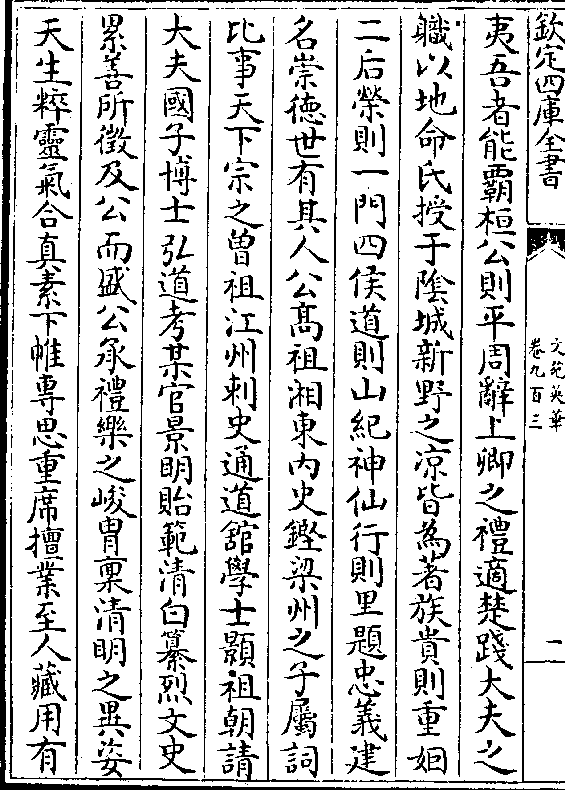 欽定四庫全書
文苑英華
卷九百三
二
夷吾者能覇桓公則平周辭上卿之禮適楚踐大夫之
職以地命氏授于陰城新野之凉皆為著族貴則重姻
二后榮則一門四侯道則山紀神仙行則里題忠義建
名崇德世有其人公髙祖湘東内史鏗梁州之子屬詞
比事天下宗之曽祖江州刺史通道舘學士顥祖朝請
大夫國子博士弘道考某官景明貽範清白纂烈文史
累善所徵及公而盛公承禮樂之峻胄禀清明之異姿
天生粹靈氣合真素下帷專思重席擅業至人藏用有